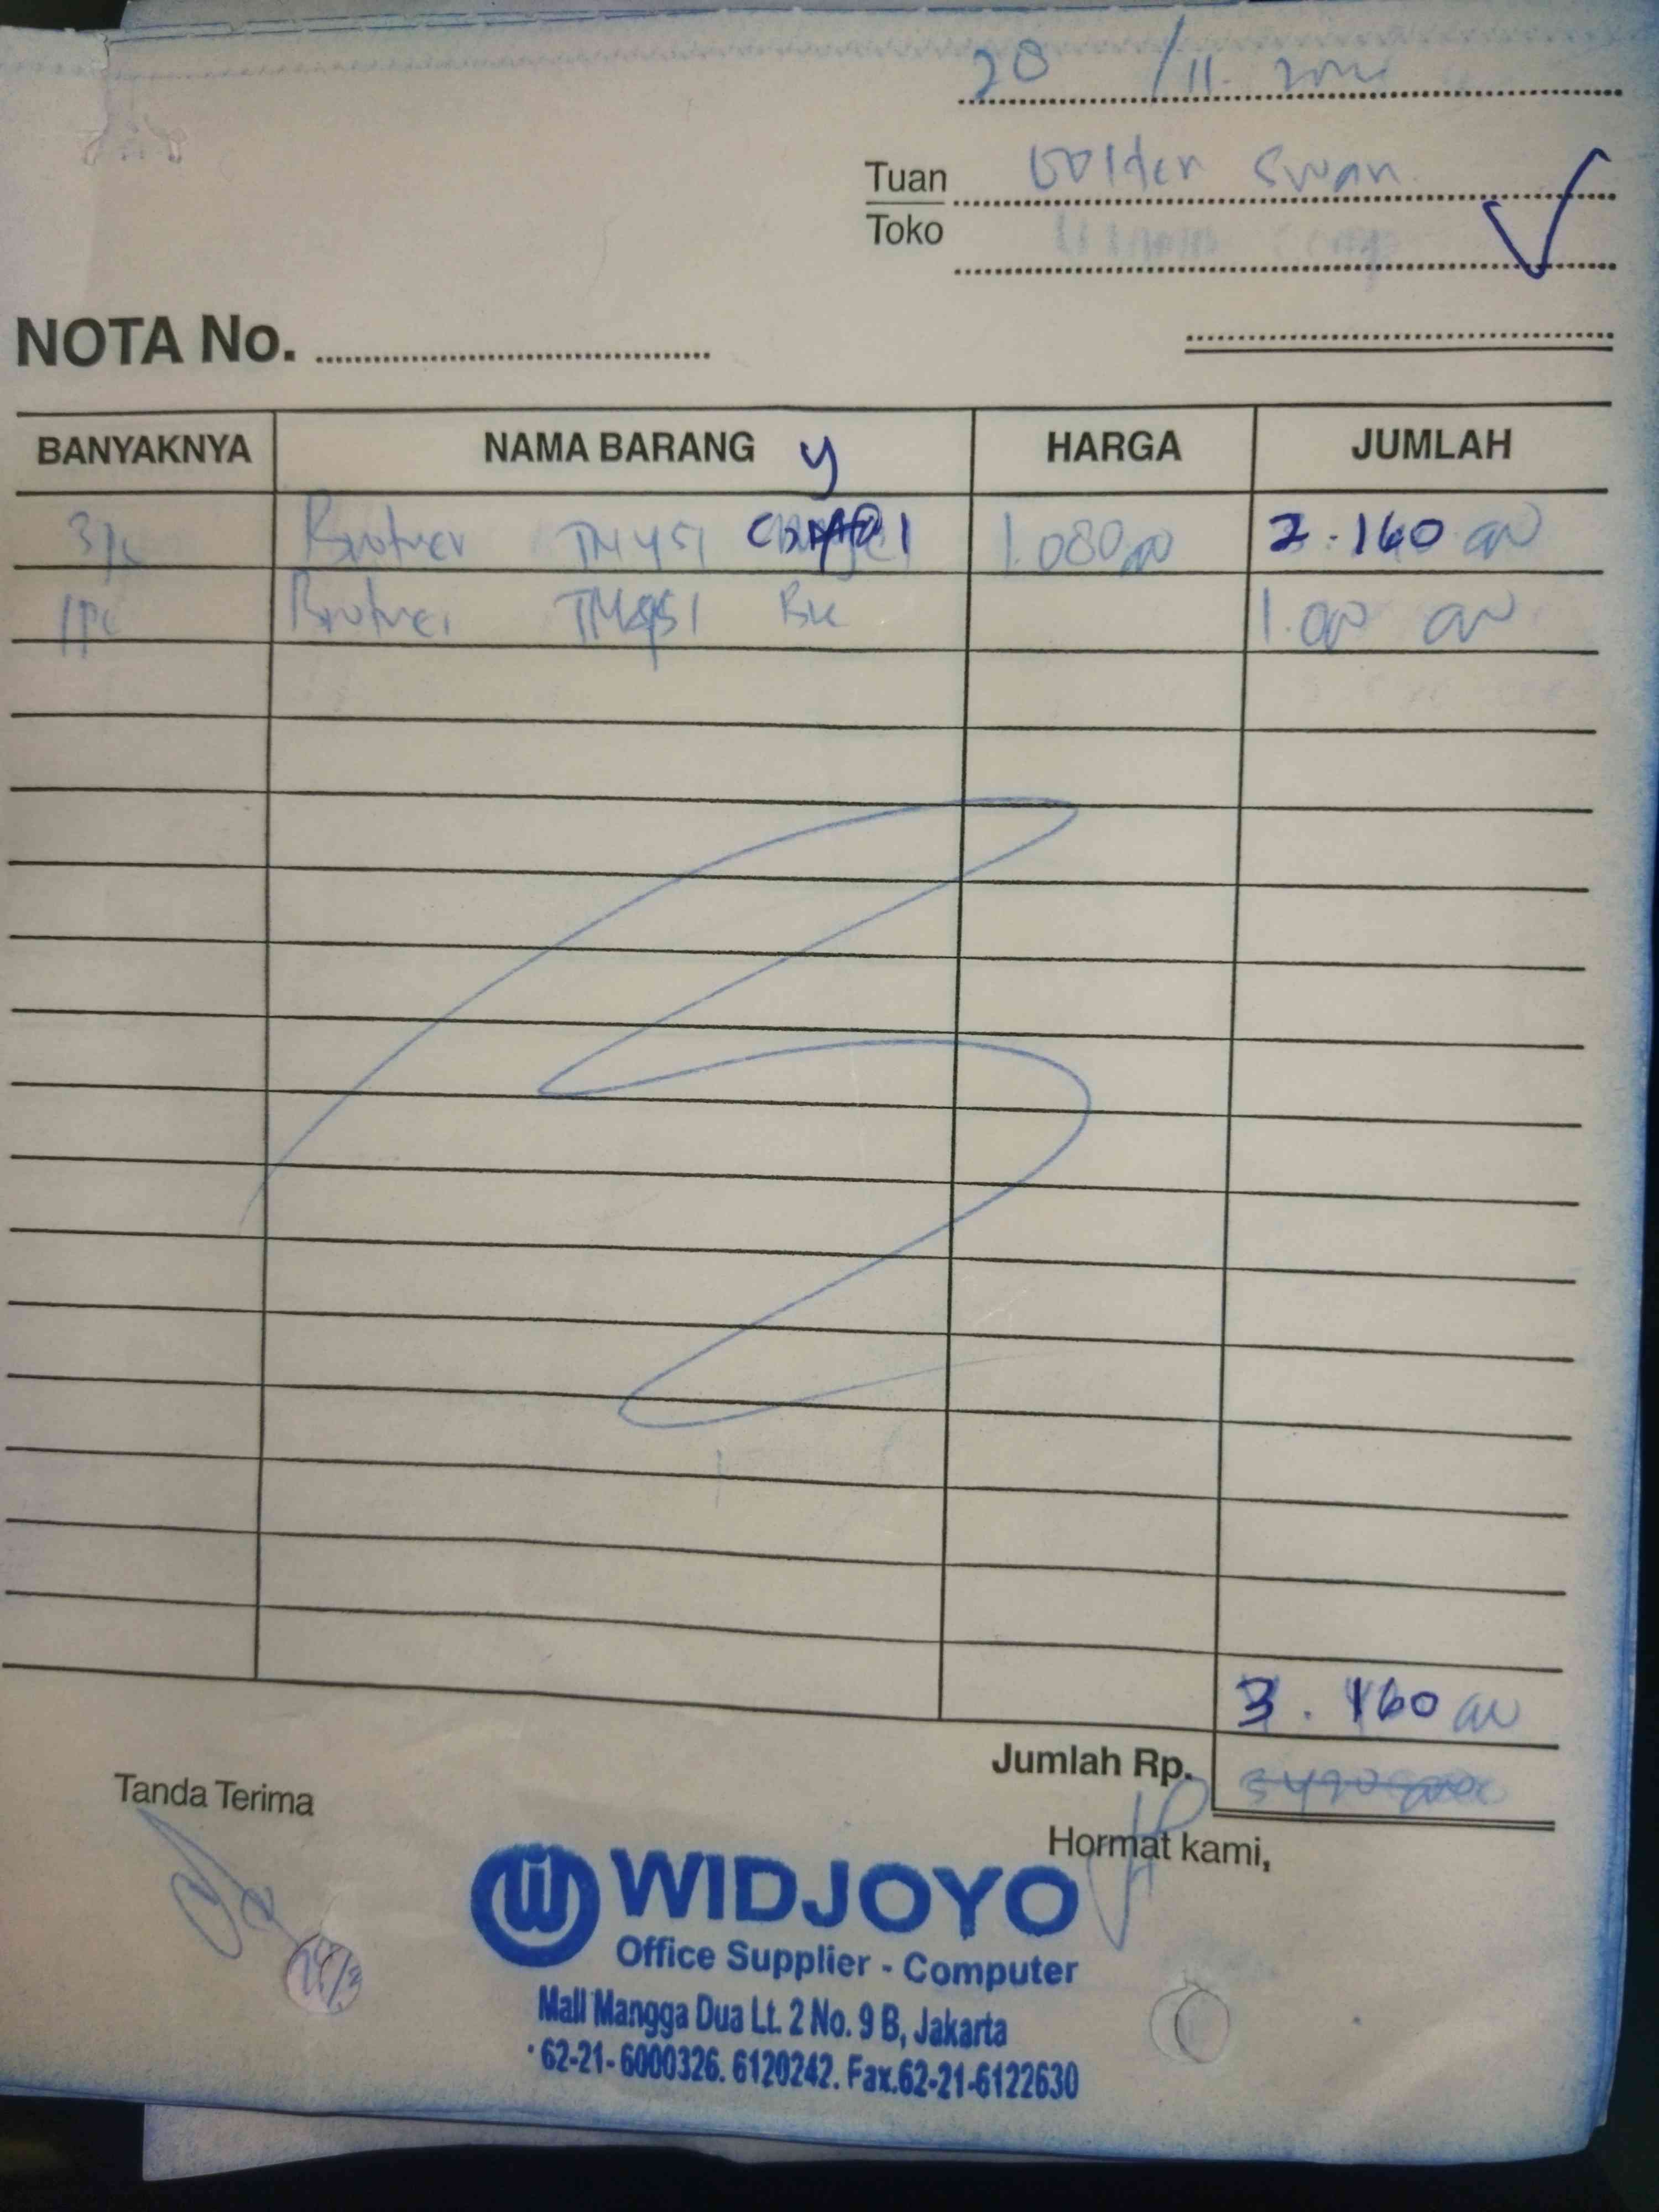 20 /11-
Tuan Golden Swan
Toko
NOTA No.
BANYAKNYA NAMA BARANG y HARGA JUMLAH
3pc Brother TN451 1.080 00 2.160 00
1pc Brother TN451 BK 1.00 00
3.160 00
Jumlah Rp.
Tanda Terima
Hormat kami,
WIDJOYO
Office Supplier - Computer
Mall Mangga Dua Lt. 2 No. 9 B, Jakarta
62-21-6000326. 6120242. Fax.62-21-6122630